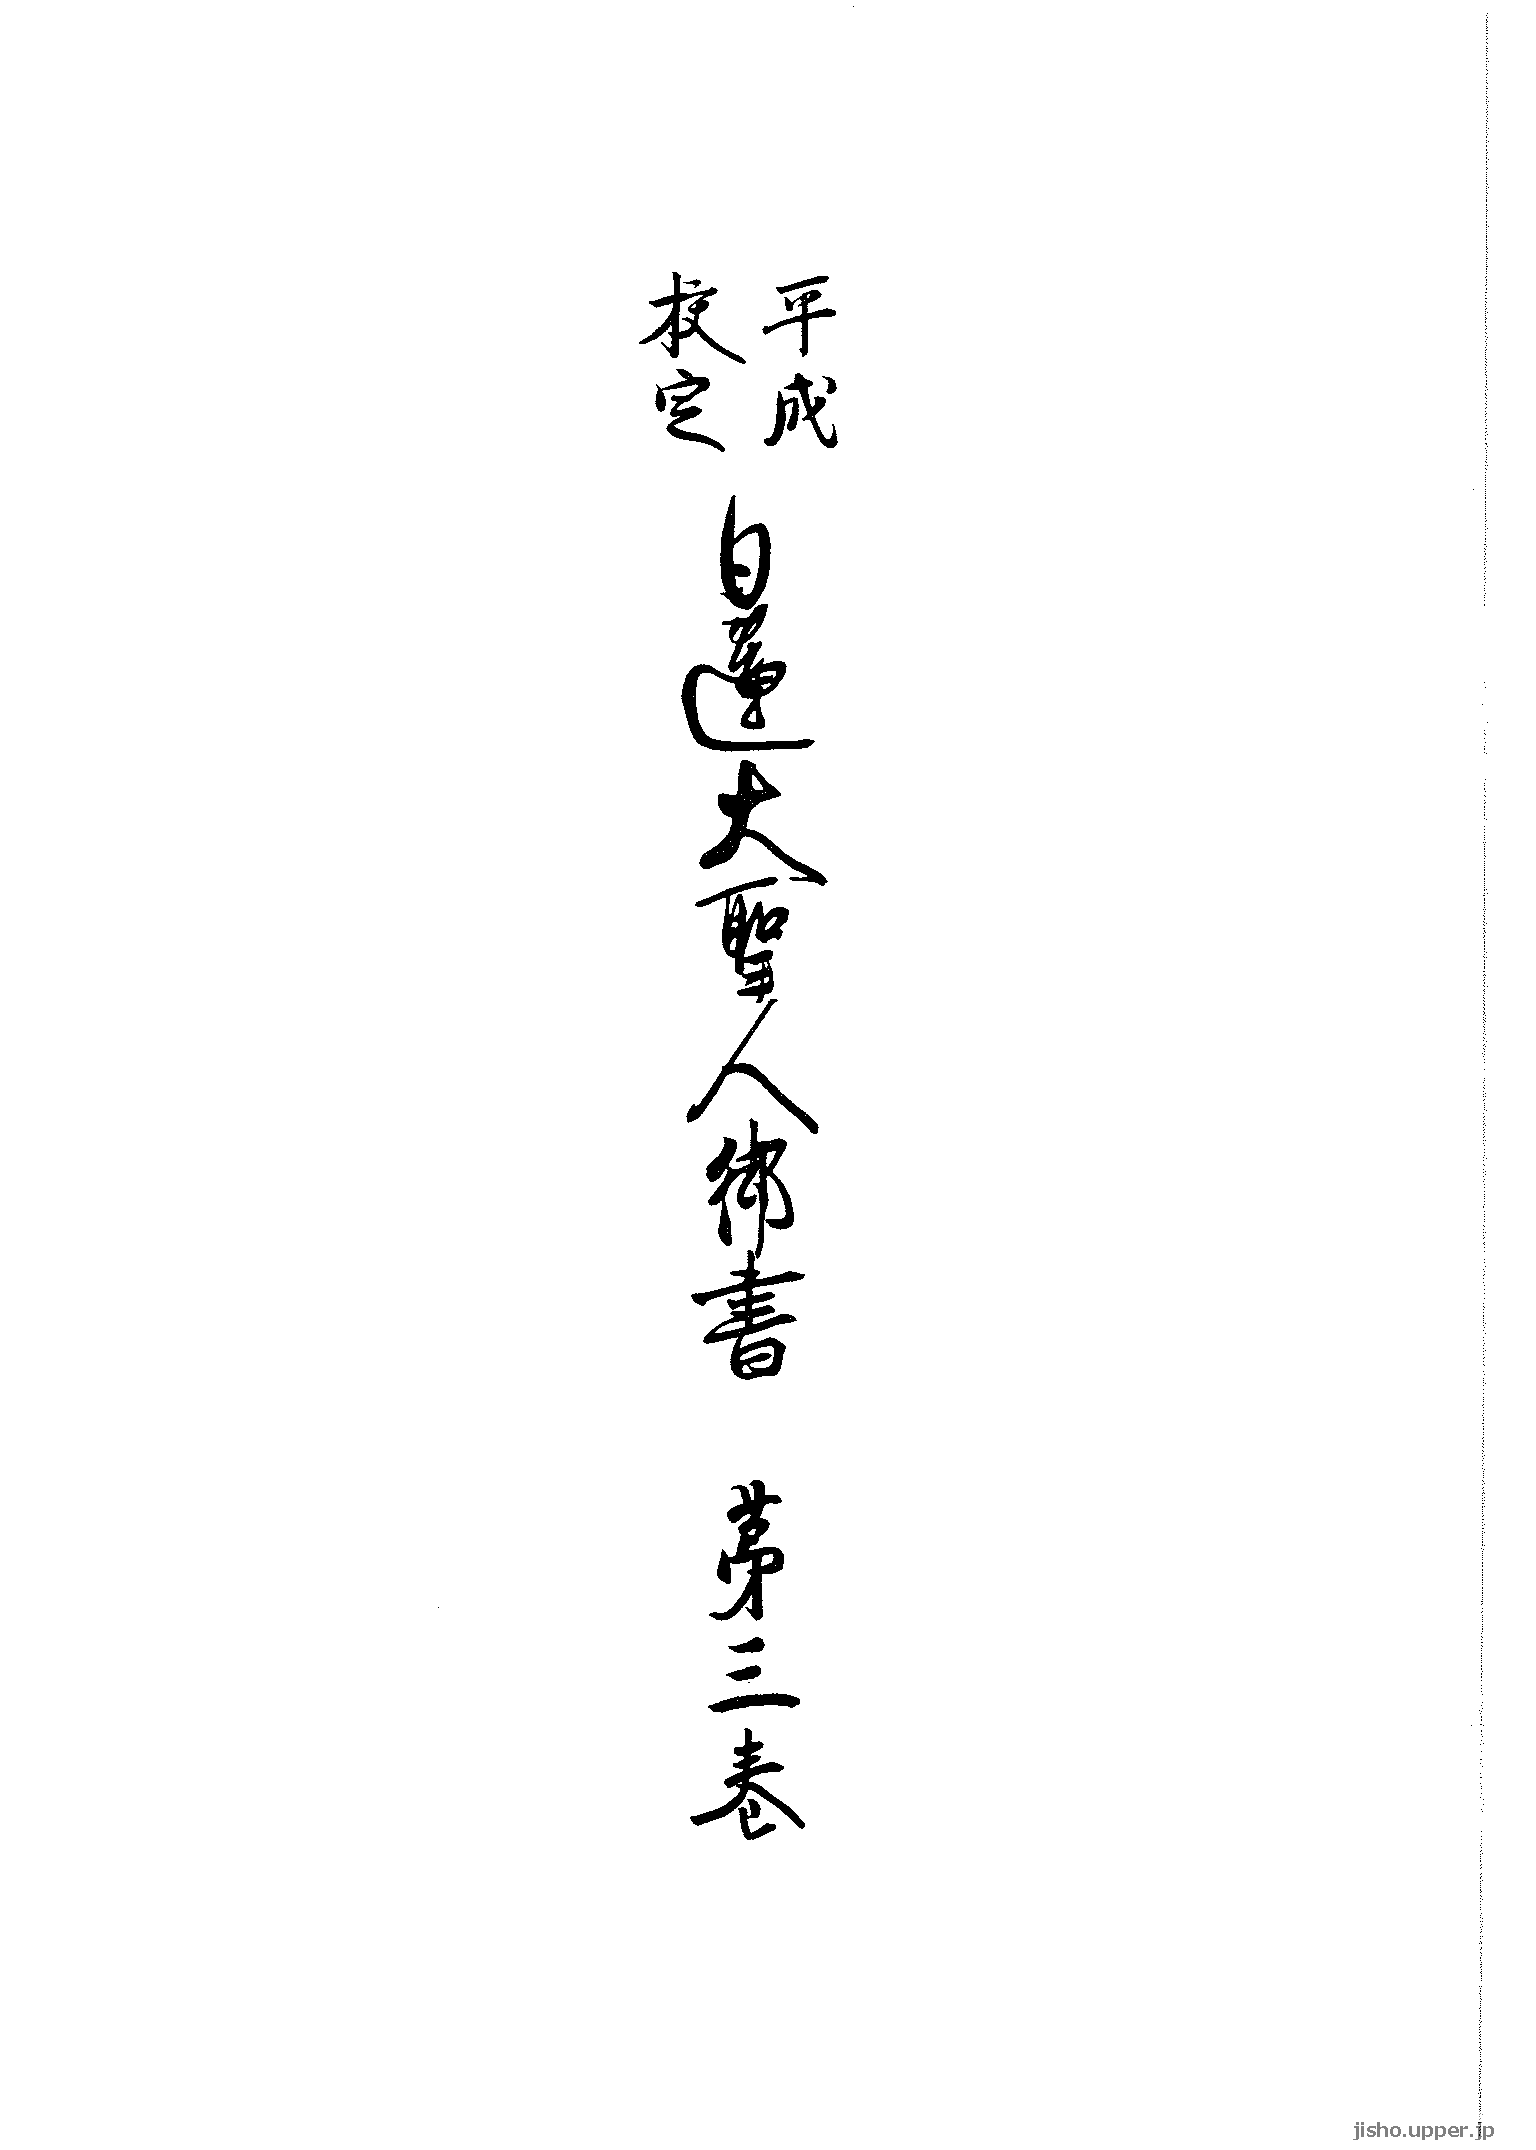 平成
校定
日蓮大聖人御書 第三巻
jisho.upper.jp